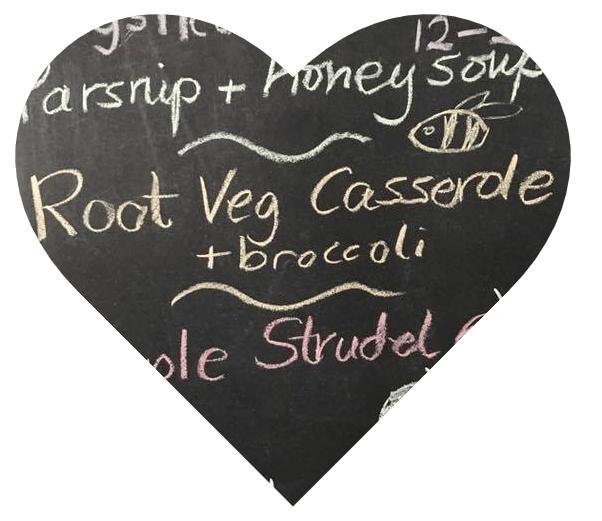 12-
Parsnip + Honey soup
Root Veg Casserole
+broccoli
Strudel